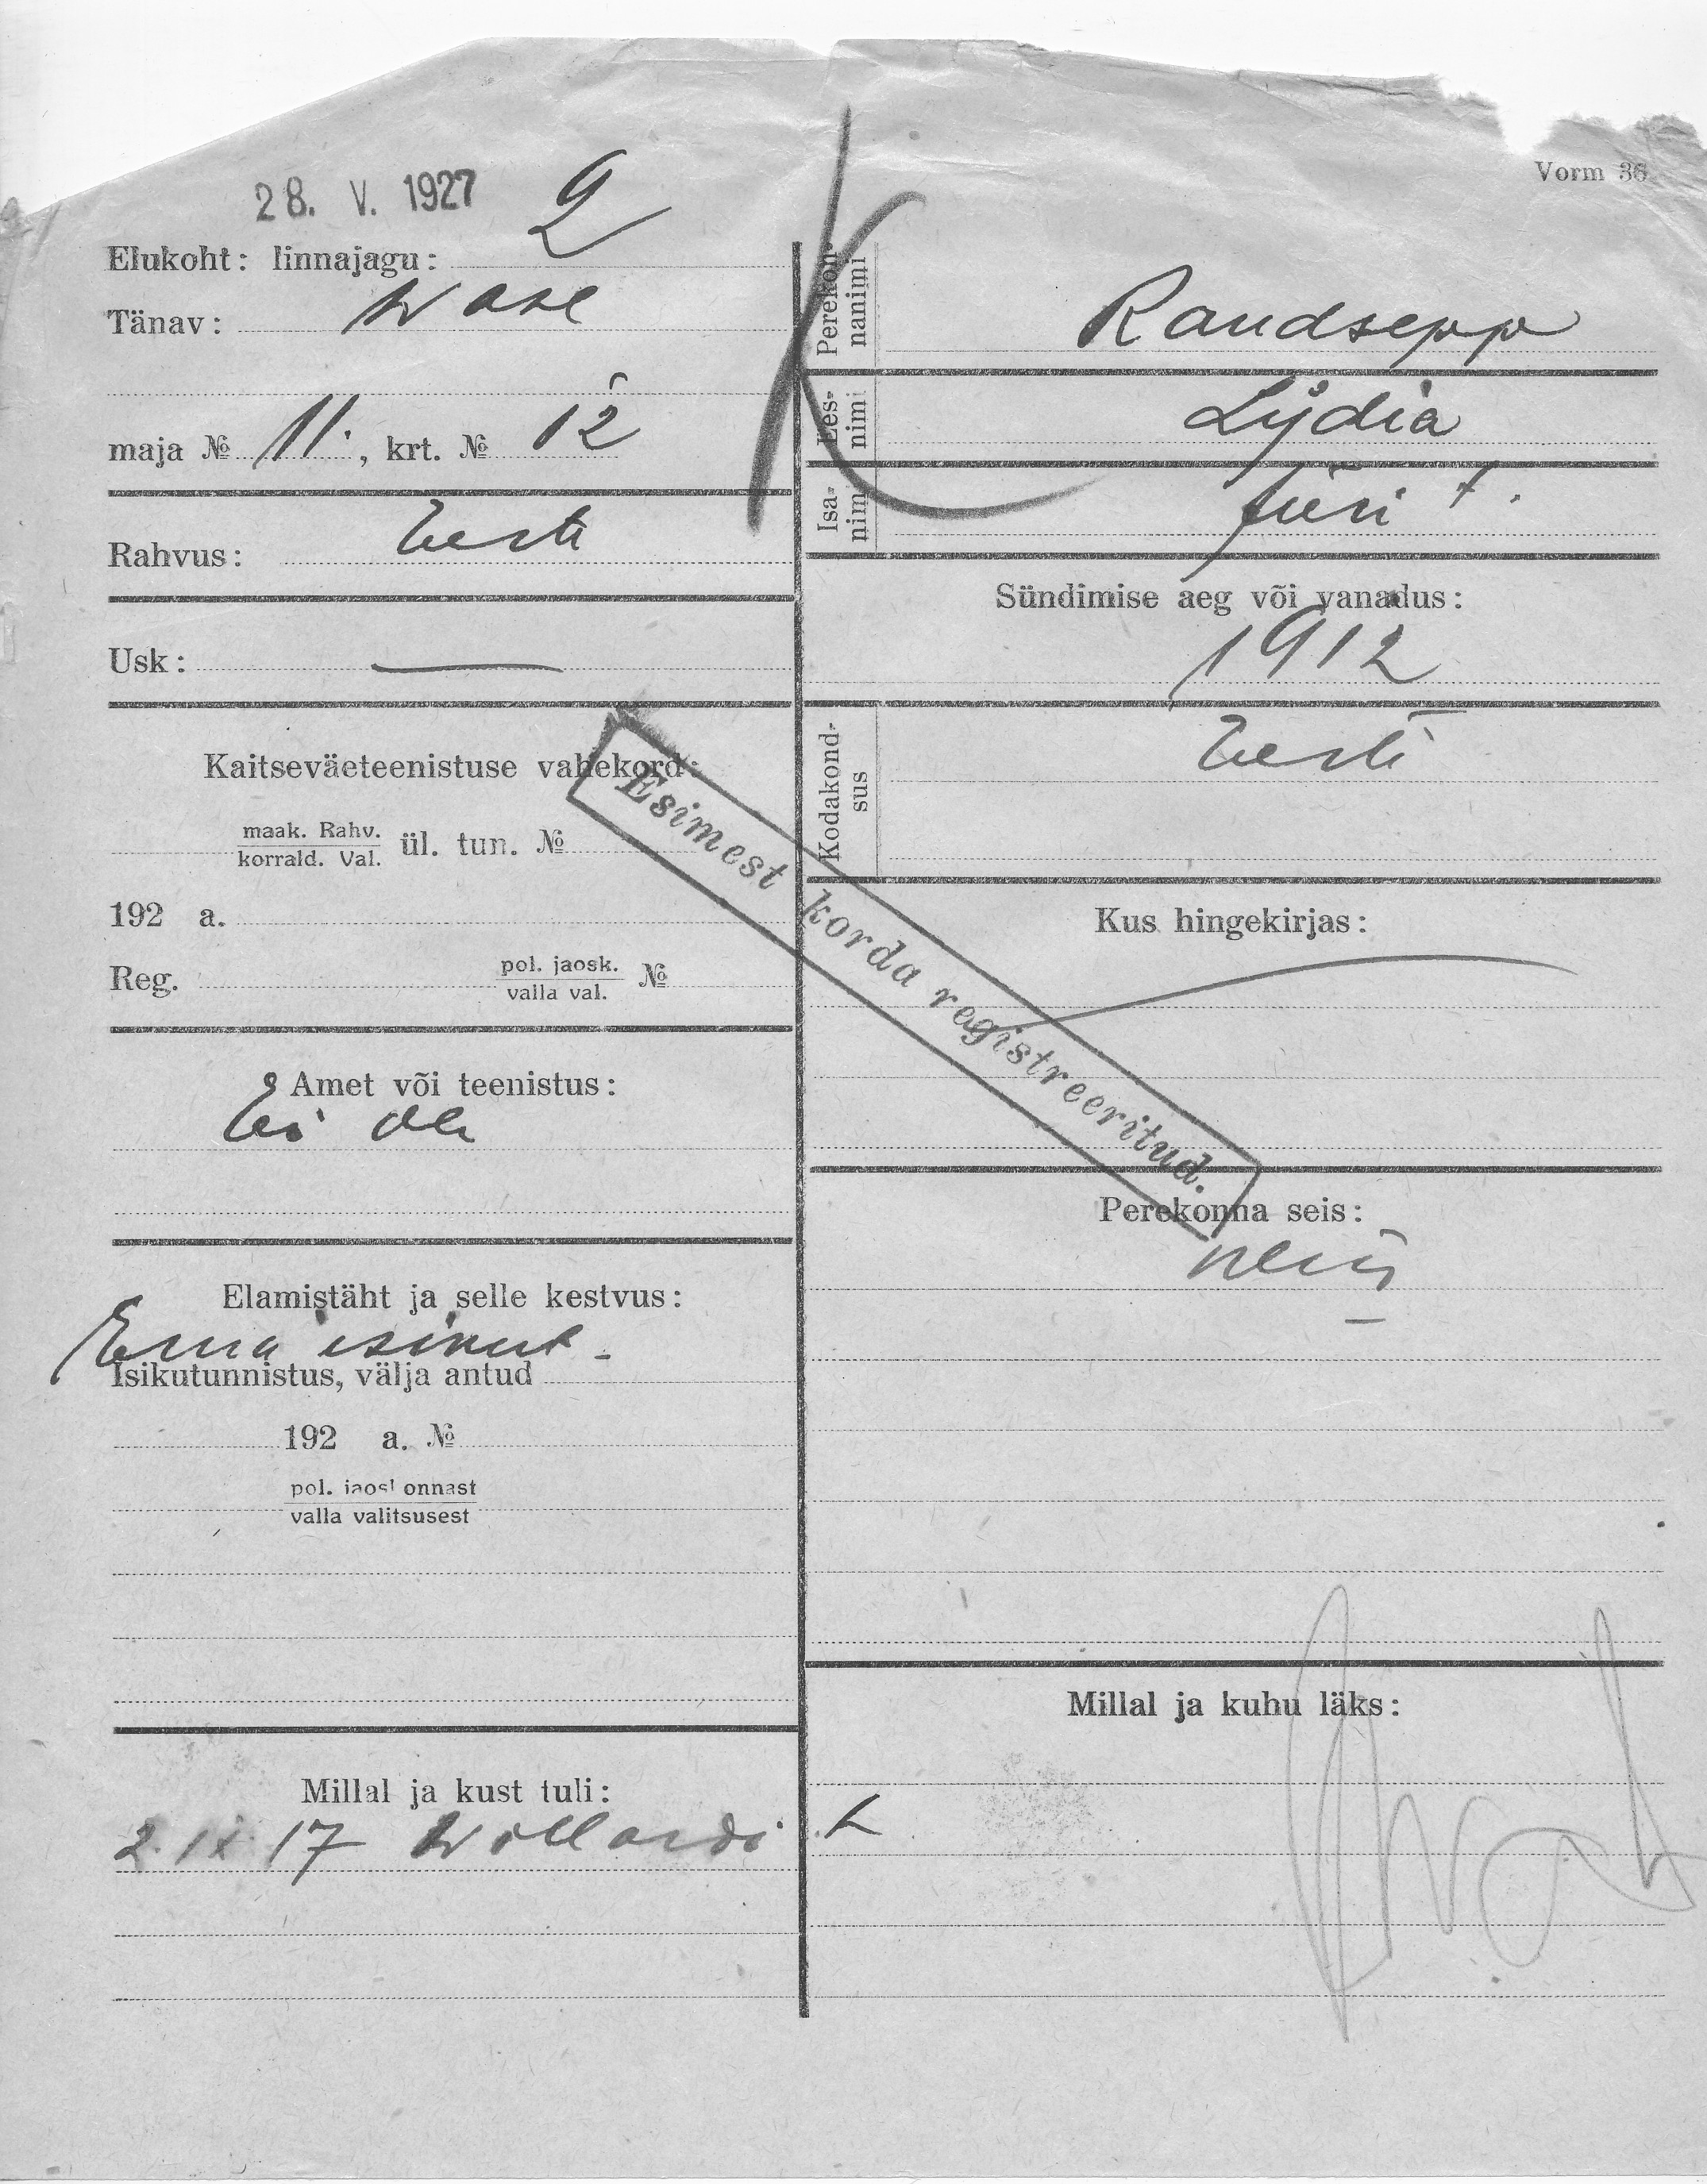 28. V. 1927
Vorm 36
Elukoht: linnajagu: 2
Tänav: Wase
maja № 11. , krt. № 12
Rahvus: Eesti
Usk: —
Kaitseväeteenistuse vahekord:
maak. Rahv.
korrald. Val.
ül. tun. №
192 a.
Reg.
pol. jaosk.
valla val.
№
Amet või teenistus:
Ei ole
Elamistäht ja selle kestvus:
Ema isikut-
Isikutunnistus, välja antud
192 a. №
pol. jaoskonnast
valla valitsusest
Millal ja kust tuli:
2. IX 17 Willardi
Perekon-
nanimi
Raudsepp
Ees-
nimi
Lydia
Isa-
nimi
Jüri †.
Sündimise aeg või vanadus:
1912
Kodakond-
sus
Eesti
Kus hingekirjas:
Esimest korda registreeritud.
Perekonna seis:
neiu
Millal ja kuhu läks: